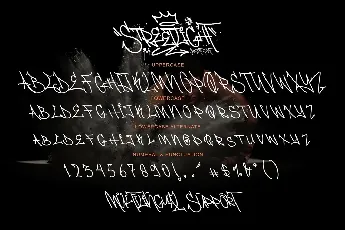 STREETLIGHT
UPPERCASE
ABCDEFGHIJKLMNOPQRSTUVWXYZ
LOWERCASE
ABCDEFGHIJKLMNOPQRSTUVWXYZ
LOWERCASE ALTERNATE
ABCDEFGHIJKLMNOPQRSTUVWXYZ
NUMERAL & PUNCTUATION
1234567890!,..' *#$%&°()
MULTILINGUAL SUPPORT